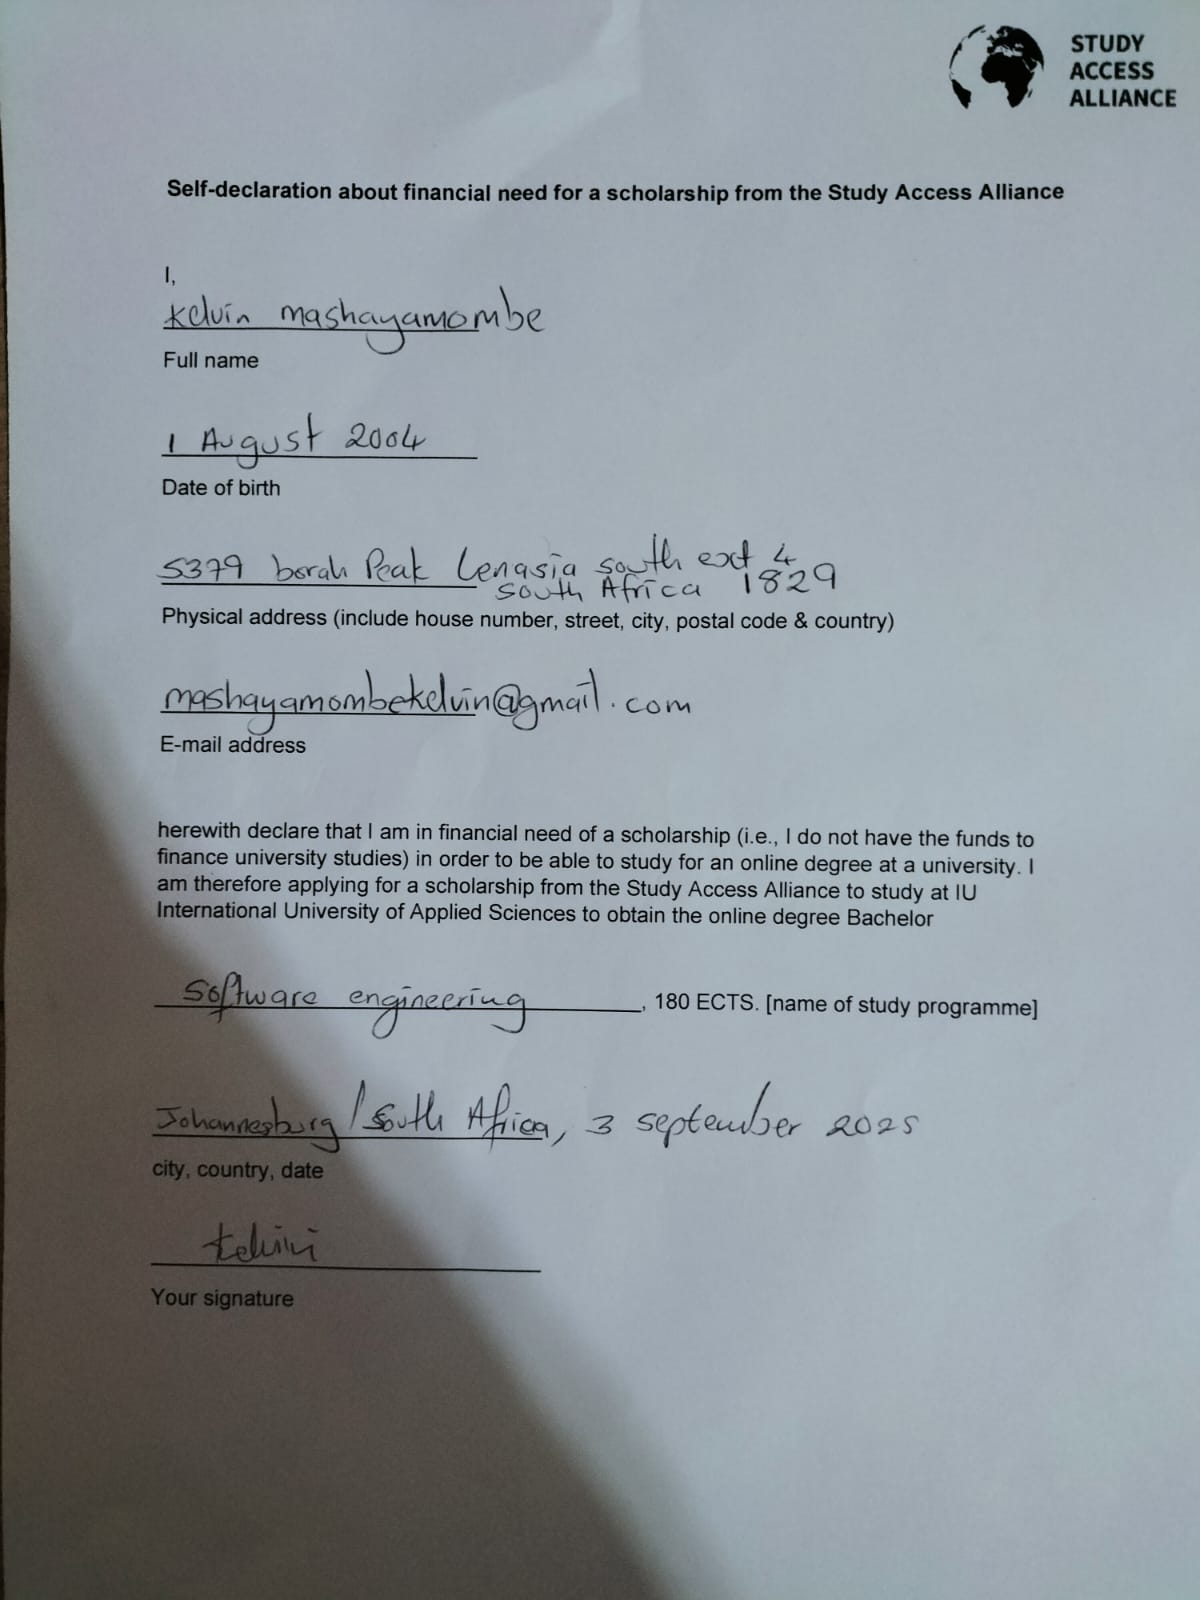 STUDY
ACCESS
ALLIANCE
Self-declaration about financial need for a scholarship from the Study Access Alliance
I,
Kelvin mashayamombe
Full name
1 August 2004
Date of birth
5379 borah Peak Lenasia south ext 4
south Africa 1829
Physical address (include house number, street, city, postal code & country)
mashayamombekelvin@gmail.com
E-mail address
herewith declare that I am in financial need of a scholarship (i.e., I do not have the funds to
finance university studies) in order to be able to study for an online degree at a university. I
am therefore applying for a scholarship from the Study Access Alliance to study at IU
International University of Applied Sciences to obtain the online degree Bachelor
Software engineering, 180 ECTS. [name of study programme]
Johannesburg / South Africa, 3 september 2025
city, country, date
Kelvin
Your signature